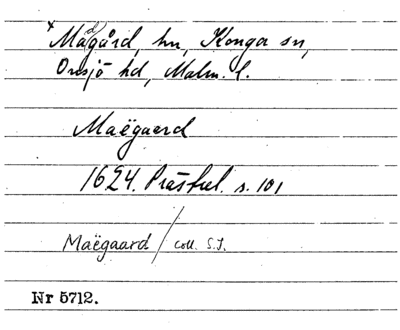 * Madgård, hn, Konga sn,
Onsjö hd, Malm. l.
Maëgaard
1624. Prästrel. s. 101
Maëgaard / coll. S.J.
Nr 5712.